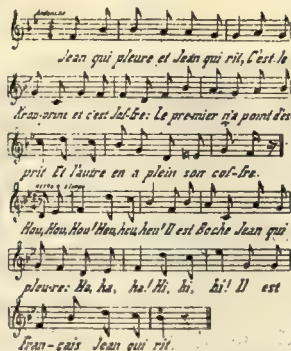 Andantino
Jean qui pleure et Jean qui rit, C'est le
Kron-prinz et c'est Jof-fre: Le pre-mier n'a point d'es
prit Et l'autre en a plein son cof-fre.
Hou, Hou, Hou! Heu, heu, heu! Il est Boche Jean qui
pleu-re: Ha, ha, ha! Hi, hi, hi! Il est
Fran-çais Jean qui rit.